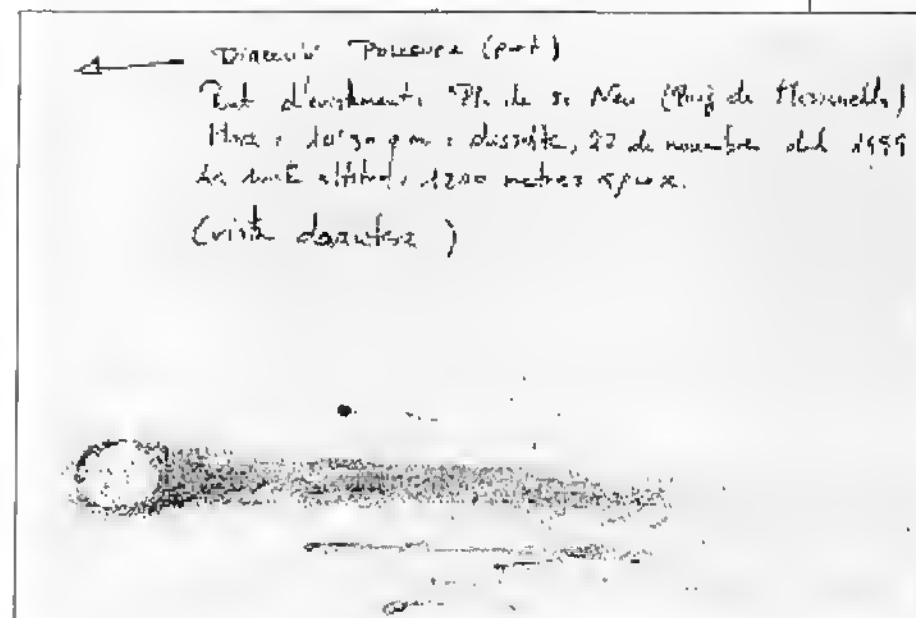 Direcció Pollença (port)
Punt d'avistament: "Pla de sa Neu (Puig de Massanella)
Hora: p.m. dissabte, 27 de novembre del 1999
altitud: 1200 metres aprox.
(vista davantera)